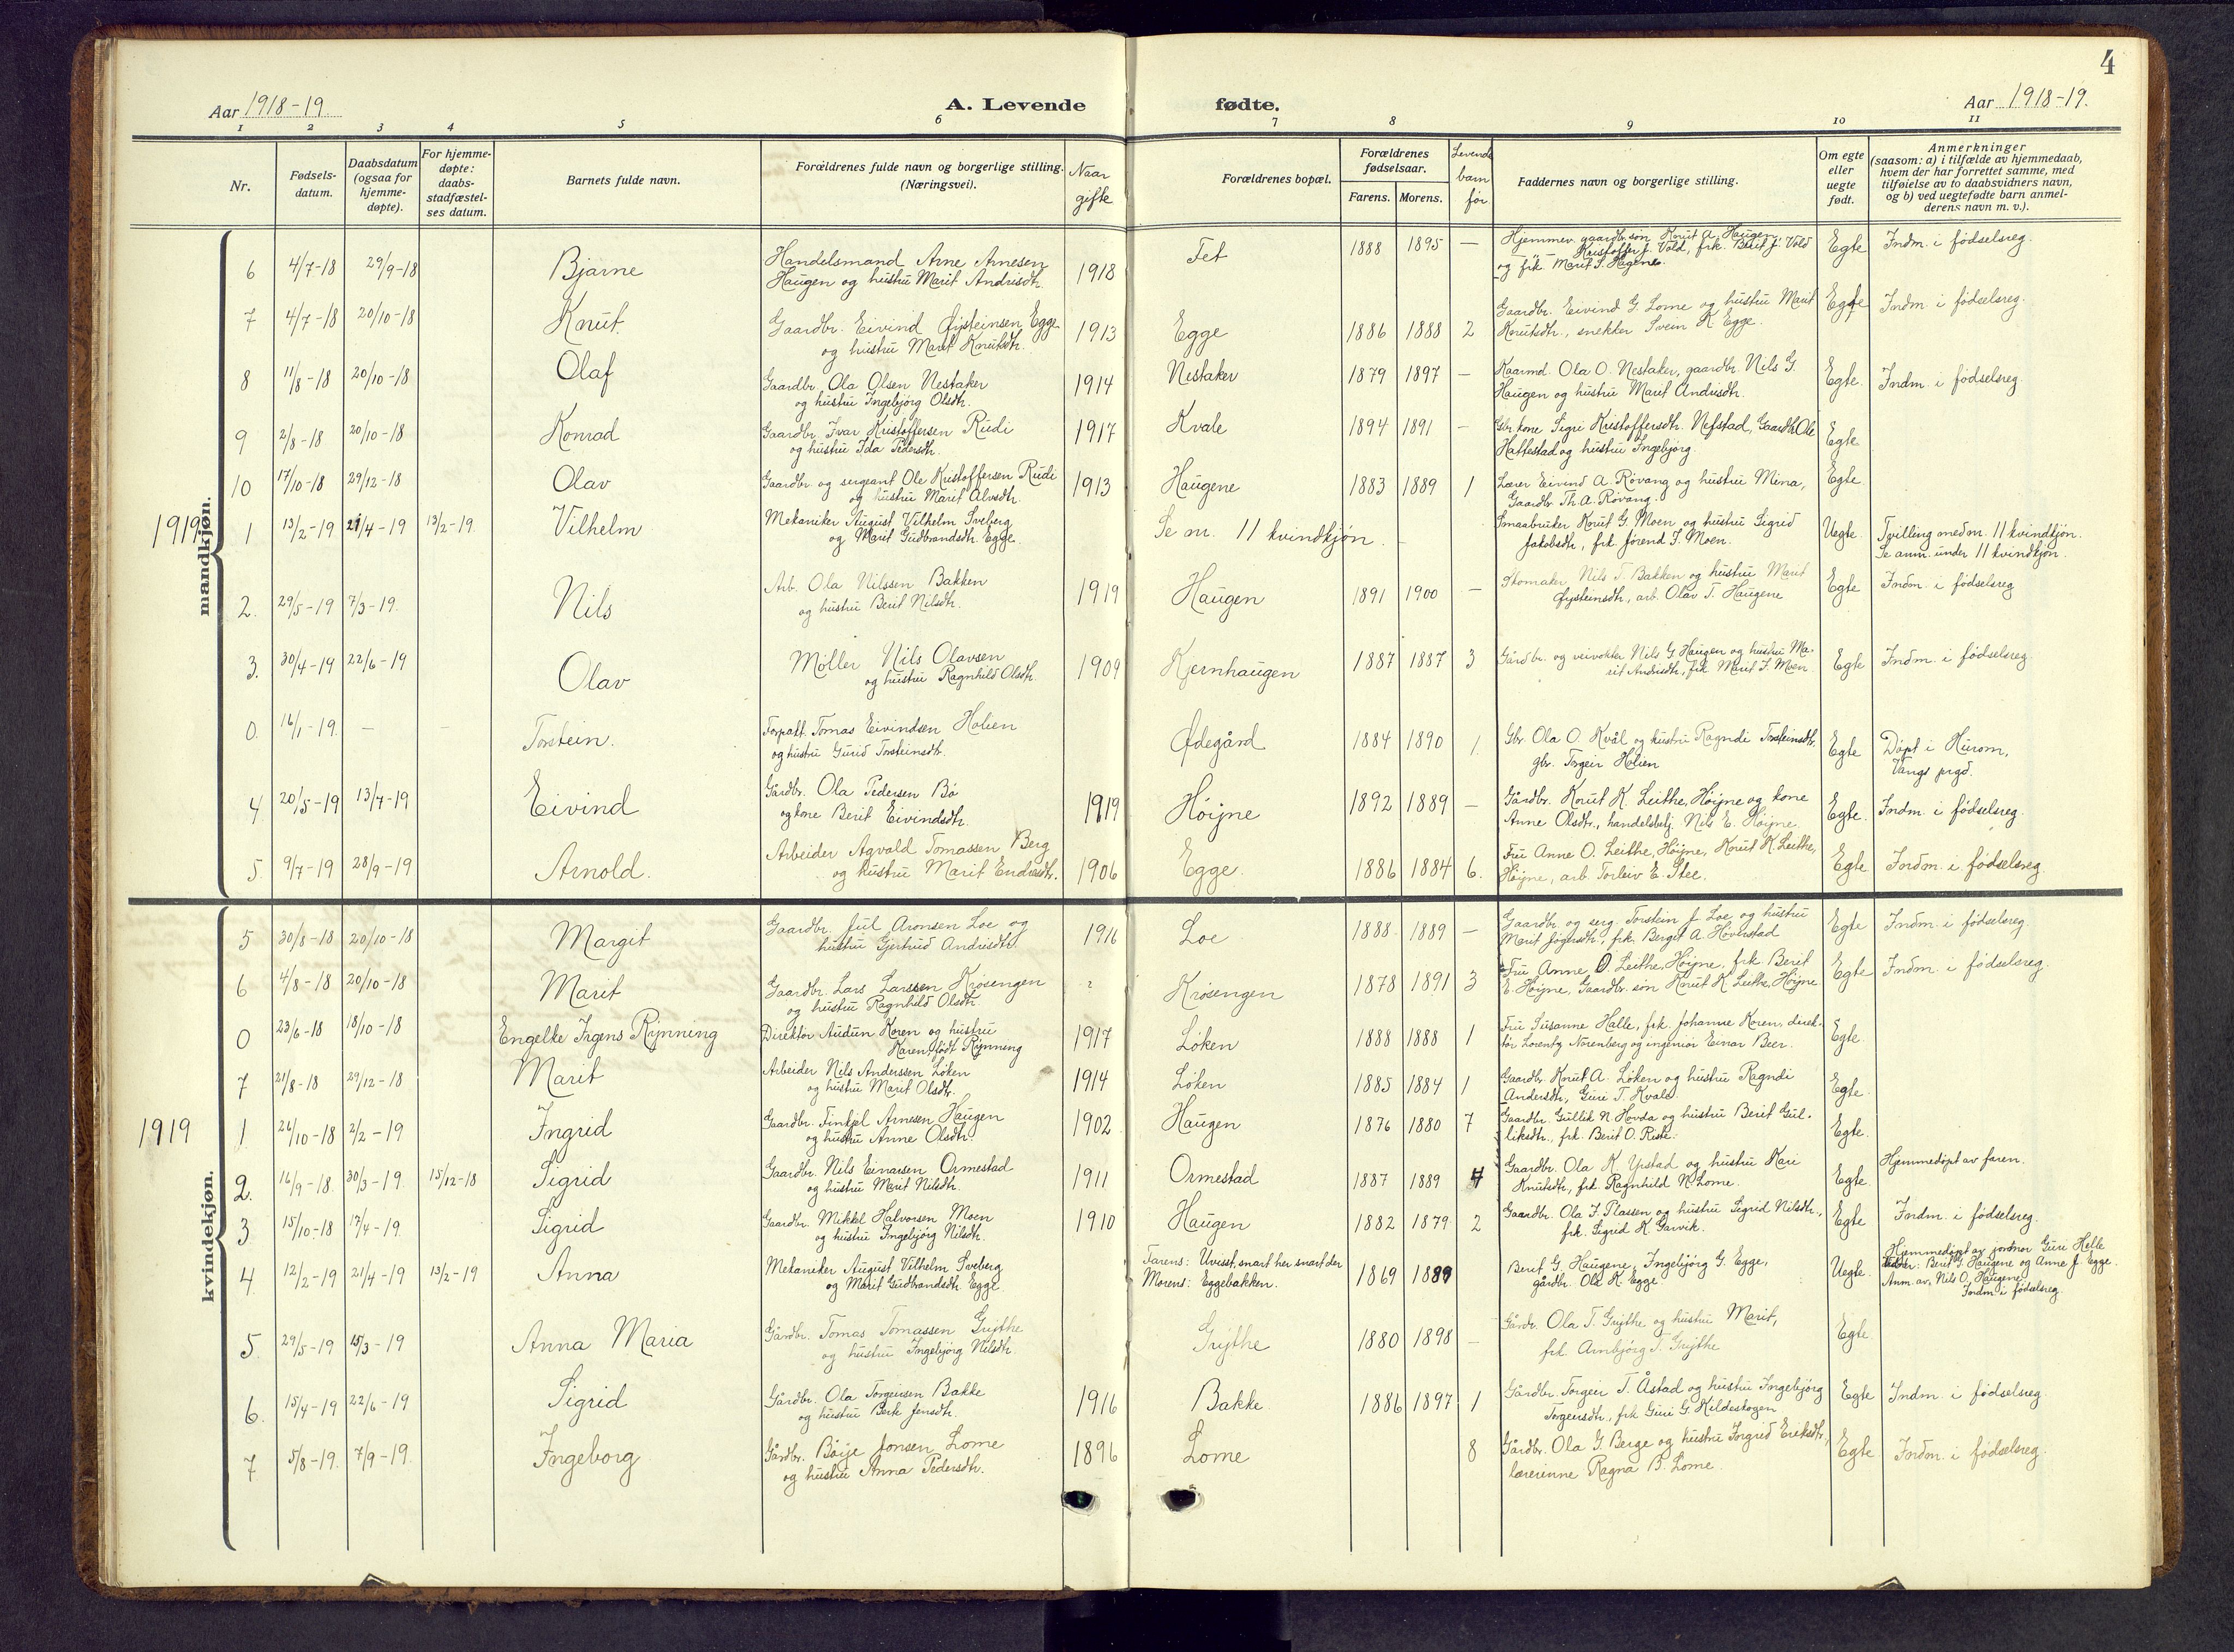 4
Aar 1918-19
A. Levende fødte.
Aar 1918-19.
1 2 3 4 5 6 7 8 9 10 11
Nr.
Fødsels-
datum.
Daabsdatum
(ogsaa for
hjemme-
døpte).
For hjemme-
døpte:
daabs-
stadfæstel-
ses datum.
Barnets fulde navn.
Forældrenes fulde navn og borgerlige stilling.
(Næringsvei).
Naar
gifte
Forældrenes bopæl.
Forældrenes
fødselsaar.
Farens. Morens.
Levende
barn
før
Faddernes navn og borgerlige stilling.
Om egte
eller
uegte
født.
Anmerkninger
(saasom: a) i tilfælde av hjemmedaab,
hvem der har forrettet samme, med
tilføielse av to daabsvidners navn,
og b) ved uegtefødte barn anmel-
derens navn m. v.).
mandkjøn.
6 4/7-18 29/9-18 Bjarne
Handelsmand Arne Arnesen
Haugen og hustru Marit Andrisdtr.
1918 Tet 1888 1895 —
Hjemmev. gaardbr. søn Knut A. Haugen,
Kristoffer J. Vold, frk. Berit J. Vold
og frk. Marit S. Hagene.
Egte Indm. i fødselsreg.
7 4/7-18 20/10-18 Knut.
Gaardbr. Eivind Øysteinsen Egge
og hustru Marit Knutsdtr.
1913 Egge 1886 1888 2
Gaardbr. Eivind G. Lome og hustru Marit
Knutsdtr., snekker Svein K. Egge.
Egte Indm. i fødselsreg.
8 11/8-18 20/10-18 Olaf
Gaardbr. Ola Olsen Nestaker
og hustru Ingebjørg Olsdtr.
1914 Nestaker 1879 1897 —
Kaarmd. Ola O. Nestaker, gaardbr. Nils G.
Haugen og hustru Marit Andrisdtr.
Egte. Indm. i fødselsreg.
9 2/8-18 20/10-18 Konrad
Gaardbr. Ivar Kristoffersen Rudi
og hustru Ida Pedersdtr.
1917 Kvale 1894 1891 —
Gbr. kone Sigri Kristoffersdtr. Nefstad, Gaardbr. Ole
Hattestad og hustru Ingebjørg.
Egte
10 17/10-18 29/12-18 Olav
Gaardbr. og sergeant Ole Kristoffersen Rudi
og hustru Marit Alvsdtr.
1913 Haugene 1883 1889 1
Lærer Eivind A. Røvang og hustru Mina,
Gaardbr. Th. A. Røvang.
Egte
1919
1 13/2-19 21/4-19 13/2-19 Vilhelm
Mekaniker August Vilhelm Sveberg
og Marit Gudbrandsdtr. Egge.
Se nr. 11 kvindkjøn. —
Smaabruker Knut G. Moen og hustru Sigrid
Jakobsdtr, frk. Jørend J. Moen.
Uegte Tvilling med nr. 11 kvindkjøn.
Se anm. under 11 kvindkjøn.
2. 29/5-19 7/3-19. Nils
Arb. Ola Nilssen Bakken
og hustru Berit Nilsdtr.
1919 Haugen 1891 1900 —
Skomaker Nils T. Bakken og hustru Marit
Øysteinsdtr., arb. Olav T. Haugene
Egte Indm. i fødselsreg
3. 30/4-19 22/6-19 Olav
Møller Nils Olavsen
og hustru Ragnhild Olsdtr.
1909 Kjernhaugen 1887 1887 3
Gårdbr. og veivokter Nils G. Haugen og hustru Ma-
rit Andrisdtr., frk. Marit J. Moen
Egte Indm. i fødselsreg
0. 16/1-19. — — Torstein.
Forpakt. Tomas Eivindsen Holien
og hustru Gurid Torsteinsdtr.
Ødegård 1884 1890 1.
Gbr. Ola O. Kvål og hustru Ragndi Torsteinsdtr.
gbr. Torgeir Holien
Egte Døpt i Hurom,
Vangs prgd.
4 20/5-19 13/7-19 Eivind
Gårdbr. Ola Pedersen Bø
og kone Berit Eivindsdtr.
1919 Høijne 1892 1889 —
Gårdbr. Knut K. Leithe, Høijne og kone
Anne Olsdtr., handelsbetj. Nils E. Høijne.
Egte. Indm. i fødselsreg.
5. 9/7-19 28/9-19 Arnold.
Arbeider Agvald Tomassen Berg
og hustru Marit Endresdtr.
1906 Egge. 1886 1884 6.
Fru Anne O. Leithe, Høijne, Knut K. Leithe,
Høijne, arb. Torleiv E. Stee.
Egte Indm. i fødselsreg
kvindekjøn.
5 30/8-18 20/10-18 Margit
Gaardbr. Jul Aronsen Loe og
hustru Gjertrud Andrisdtr.
1916 Loe 1888 1889 —
Gaardbr. og serg. Torstein J. Loe og hustru
Marit Jøgersdtr., frk. Bergit A. Høverstad
Egte Indm. i fødselsreg.
6 4/8-18 20/10-18 Marit
Gaardbr. Lars Larssen Krøsengen
og hustru Ragnhild Olsdtr.
? Krøsengen 1878 1891 3
Fru Anne O. Leithe, Høijne, frk Berit
E. Høijne, Gaardbr. søn Knut K. Leithe, Høijne
Egte Indm. i fødselsreg.
0 23/6-18 18/10-18 Engelke Irgens Rynning
Direktør Audun Koren og hustru
Karen, født Rynning
1917 Løken 1888 1888 1
Fru Susanne Halle, frk. Johanne Koren, direk-
tør Lorentz Norenberg og ingeniør Einar Beer.
Egte.
7 21/8-18 29/12-18 Marit
Arbeider Nils Anderssen Løken
og hustru Marit Olsdtr.
1914 Løken 1885 1884 1
Gaardbr. Knut A. Løken og hustru Ragndi
Andersdtr, Guri T. Kvale.
Egte.
1919
1 26/10-18 2/2-19 Ingrid
Gaardbr. Finkjel Arnesen Haugen
og hustru Anne Olsdtr.
1902 Haugen 1876 1880 7
Gaardbr. Gullik N. Hovda og hustru Berit Gul-
liksdtr., frk. Berit O. Riste.
Egte.
2. 16/9-18. 30/3-19 15/12-18 Sigrid
Gaardbr. Nils Einarsen Ormestad
og hustru Marit Nilsdtr.
1911 Ormestad 1887 1889 4
Gaardbr. Ola K. Ystad og hustru Kari
Knutsdtr, frk. Ragnhild N. Lome.
Egte. Hjemmedøpt av faren.
3 15/10-18 17/4-19. Sigrid
Gaardbr. Mikkel Halvorsen Moen
og hustru Ingebjørg Nilsdtr.
1910 Haugen 1882 1879 2
Gaardbr. Ola J. Plassen og hustru Sigrid Nilsdtr.,
frk. Sigrid K. Garvik.
Egte Indm. i fødselsreg.
4 12/2-19 21/4-19 13/2-19 Anna
Mekaniker August Vilhelm Sveberg
og Marit Gudbrandsdtr. Egge
Farens: Uvisst, snart her snart der
Morens: Eggebakken.
1869 1889
Berit G. Haugene, Ingebjørg G. Egge,
gårdbr. Ola K. Egge.
Uegte. Hjemmedøpt av jordmor Guri Helle
Berit G. Haugene og Anne J. Egge.
Anm. av, Nils O. Haugene
Indm. i fødselsreg.
5. 29/5-19 15/3-19 Anna Maria
Gårdbr. Tomas Tomassen Grythe
og hustru Ingebjørg Nilsdtr.
Grythe 1880 1898 —
Gårdr. Ola T. Grythe og hustru Marit,
frk. Arnbjørg T. Grythe
Egte
6. 15/4-19 22/6-19 Sigrid
Gårdbr. Ola Torgeirsen Bakke
og hustru Berte Jensdtr.
1916 Bakke. 1886 1897 1
Gårdbr. Torgeir T. Åstad og hustru Ingebjørg
Torgeirsdtr., frk Guri G. Kildeskogen
Egte Indm. i fødselsreg.
7 5/8-19. 7/9-19. Ingeborg
Gårdbr. Bøije Jonsen Lome
og hustru Anna Pedersdtr.
1896 Lome 8
Gårdbr. Ola G. Berge og hustru Ingrid Eriksdtr.,
lærerinne Ragna B. Lome.
Egte. Indm. i fødselsreg.